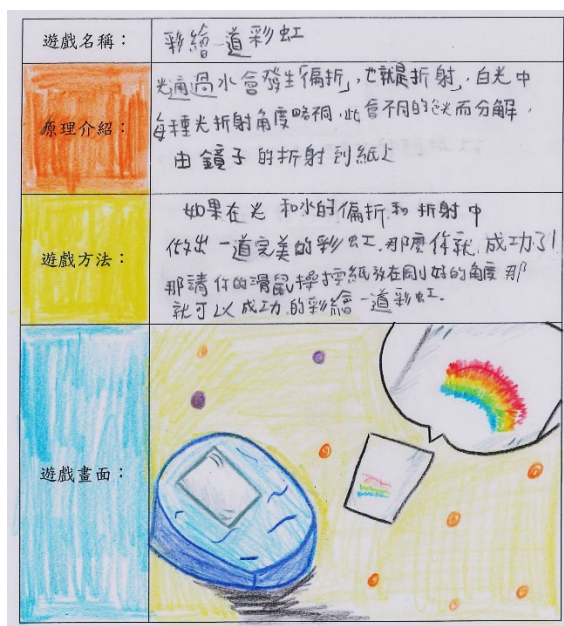 遊戲名稱：
彩繪一道彩虹
原理介紹：
光通過水會發生「偏折」,也就是「折射」,白光中
每種光折射角度略不同,此會不同的色光而分解,
由鏡子的折射到紙上
遊戲方法：
如果在光和水的偏折和折射中
做出一道完美的彩虹,那麼你就成功了!
那請你的滑鼠操控紙放在剛好的角度那
就可以成功的彩繪一道彩虹.
遊戲畫面：